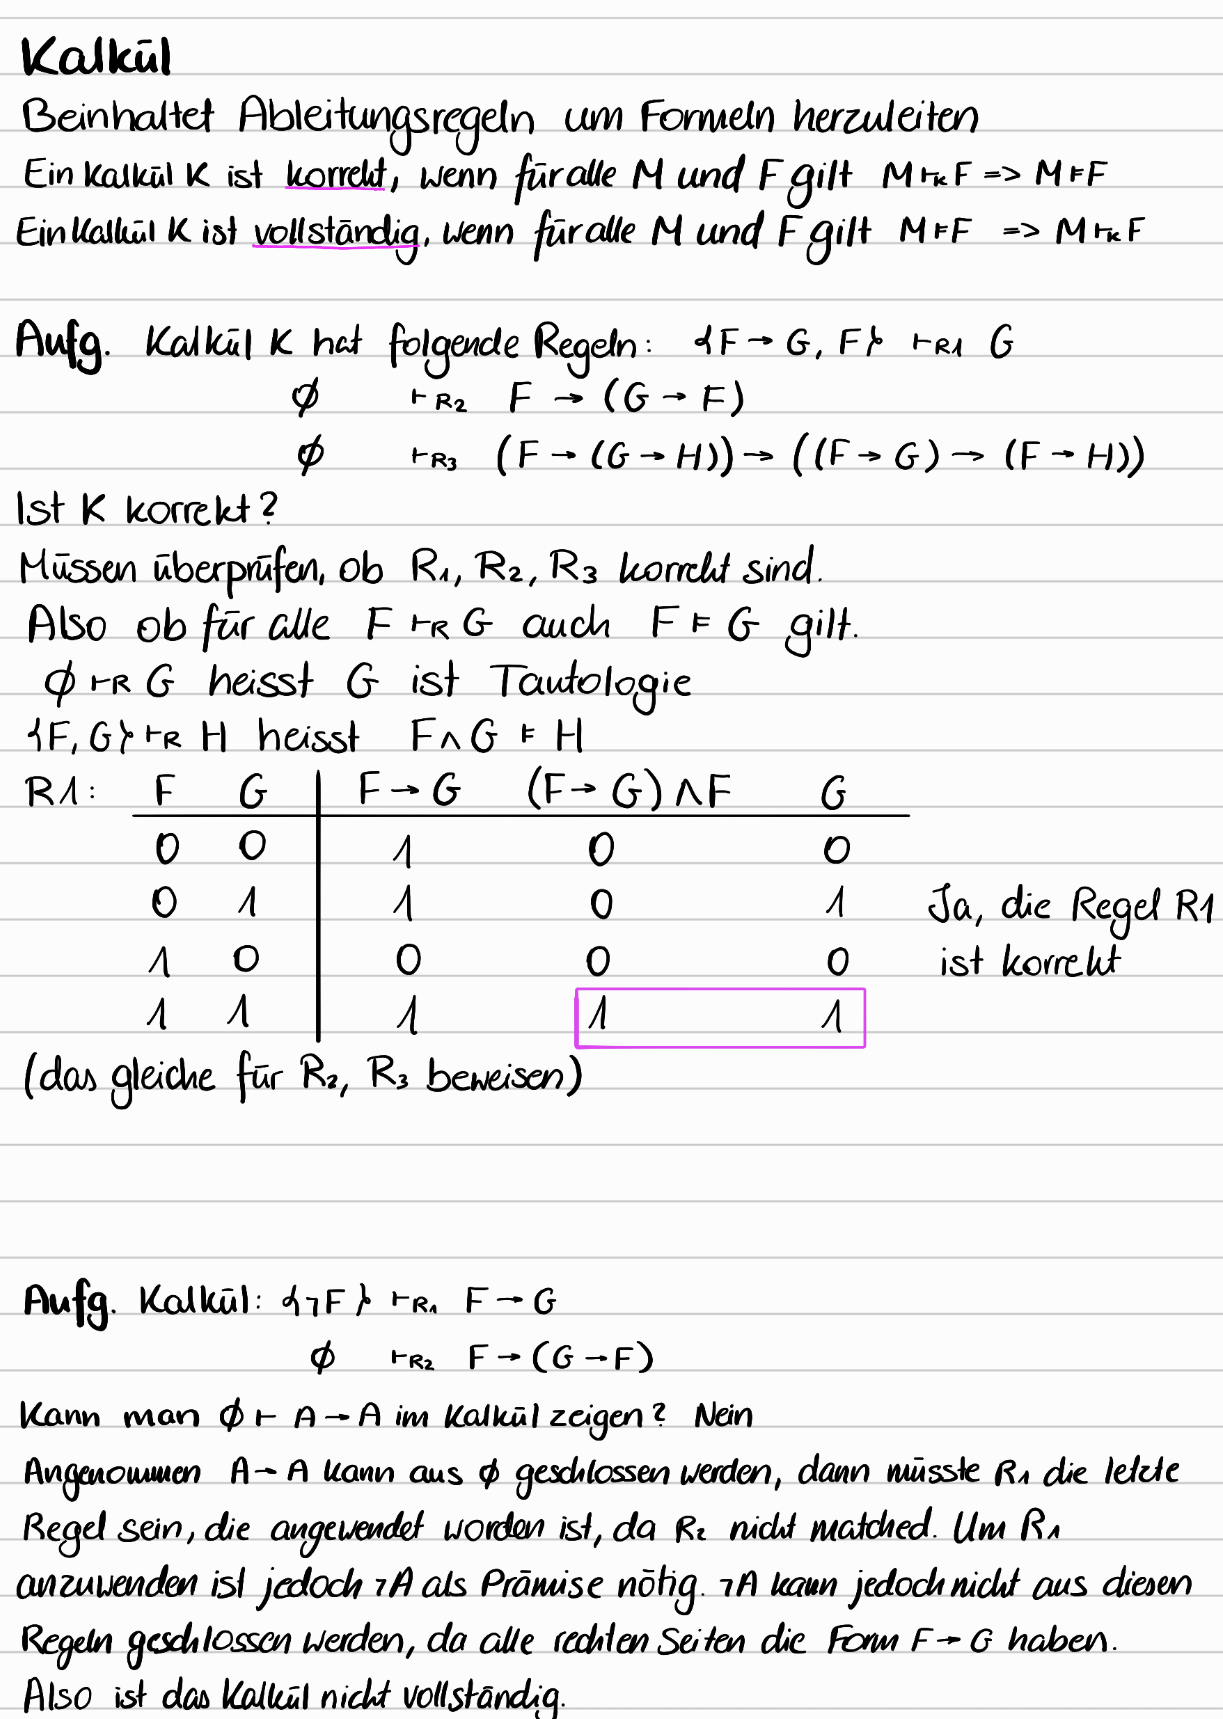 Kalkül
Beinhaltet Ableitungsregeln um Formeln herzuleiten
Ein Kalkül K ist korrekt, wenn für alle M und F gilt M ⊢ₖ F => M ⊨ F
Ein Kalkül K ist vollständig, wenn für alle M und F gilt M ⊨ F => M ⊢ₖ F
Aufg. Kalkül K hat folgende Regeln: {F → G, F} ⊢R1 G
∅ ⊢R2 F → (G → F)
∅ ⊢R3 (F → (G → H)) → ((F → G) → (F → H))
Ist K korrekt?
Müssen überprüfen, ob R₁, R₂, R₃ korrekt sind.
Also ob für alle F ⊢R G auch F ⊨ G gilt.
∅ ⊢R G heisst G ist Tautologie
{F, G} ⊢R H heisst F ∧ G ⊨ H
R1: F G F → G (F → G) ∧ F G
0 0 1 0 0
0 1 1 0 1 Ja, die Regel R1
1 0 0 0 0 ist korrekt
1 1 1 1 1
(das gleiche für R₂, R₃ beweisen)
Aufg. Kalkül: {¬F} ⊢R1 F → G
∅ ⊢R2 F → (G → F)
Kann man ∅ ⊢ A → A im Kalkül zeigen? Nein
Angenommen A → A kann aus ∅ geschlossen werden, dann müsste R₁ die letzte
Regel sein, die angewendet worden ist, da R₂ nicht matched. Um R₁
anzuwenden ist jedoch ¬A als Prämise nötig. ¬A kann jedoch nicht aus diesen
Regeln geschlossen werden, da alle rechten Seiten die Form F → G haben.
Also ist das Kalkül nicht vollständig.